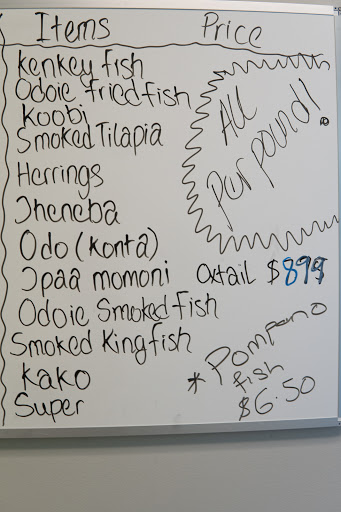 Items Price
Kenkey fish
Odoie fried fish
Koobi
Smoked Tilapia
All
Per pound!
Herrings
Ɔheneba
Odo (Konta)
Ɔpaa momoni Oxtail $899
Odoie Smoked fish
Smoked Kingfish
Kako
Super
* Pompano
fish
$6.50